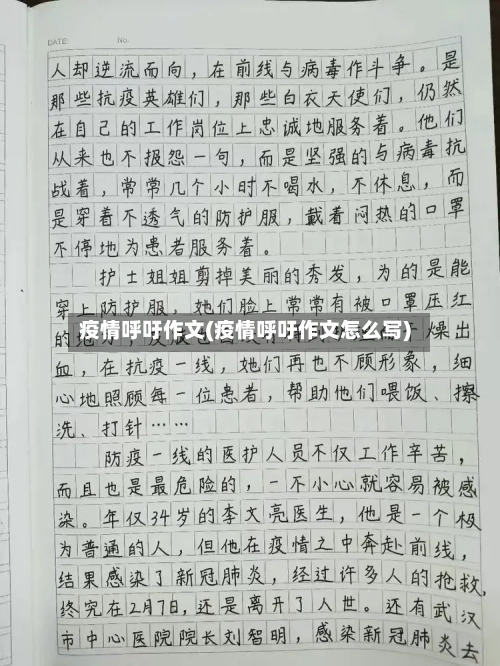 DATE No.
人却逆流而向，在前线与病毒作斗争。是
那些抗疫英雄们，那些白衣天使们，仍然
在自己的工作岗位上忠诚地服务着。他们
从来也不报怨一句，而是坚强的与病毒抗
战着，常常几个小时不喝水，不休息，而
是穿着不透气的防护服，戴着闷热的口罩
不停地为患者服务着。
护士姐姐剪掉美丽的秀发，为的是能
穿上防护服，她们脸上常常有被口罩压红
疫情呼吁作文(疫情呼吁作文怎么写)
燥出
血，在抗疫一线，她们再也不顾形象，细
心地照顾每一位患者，帮助他们喂饭、擦
洗、打针……
防疫一线的医护人员不仅工作辛苦，
而且也是最危险的，一不小心就容易被感
染。年仅34岁的李文亮医生，他是一个极
为普通的人，但他在疫情之中奔赴前线，
结果感染了新冠肺炎，经过许多人的抢救，
终究在2月7日，还是离开了人世。还有武汉
市中心医院院长刘智明，感染新冠肺炎去